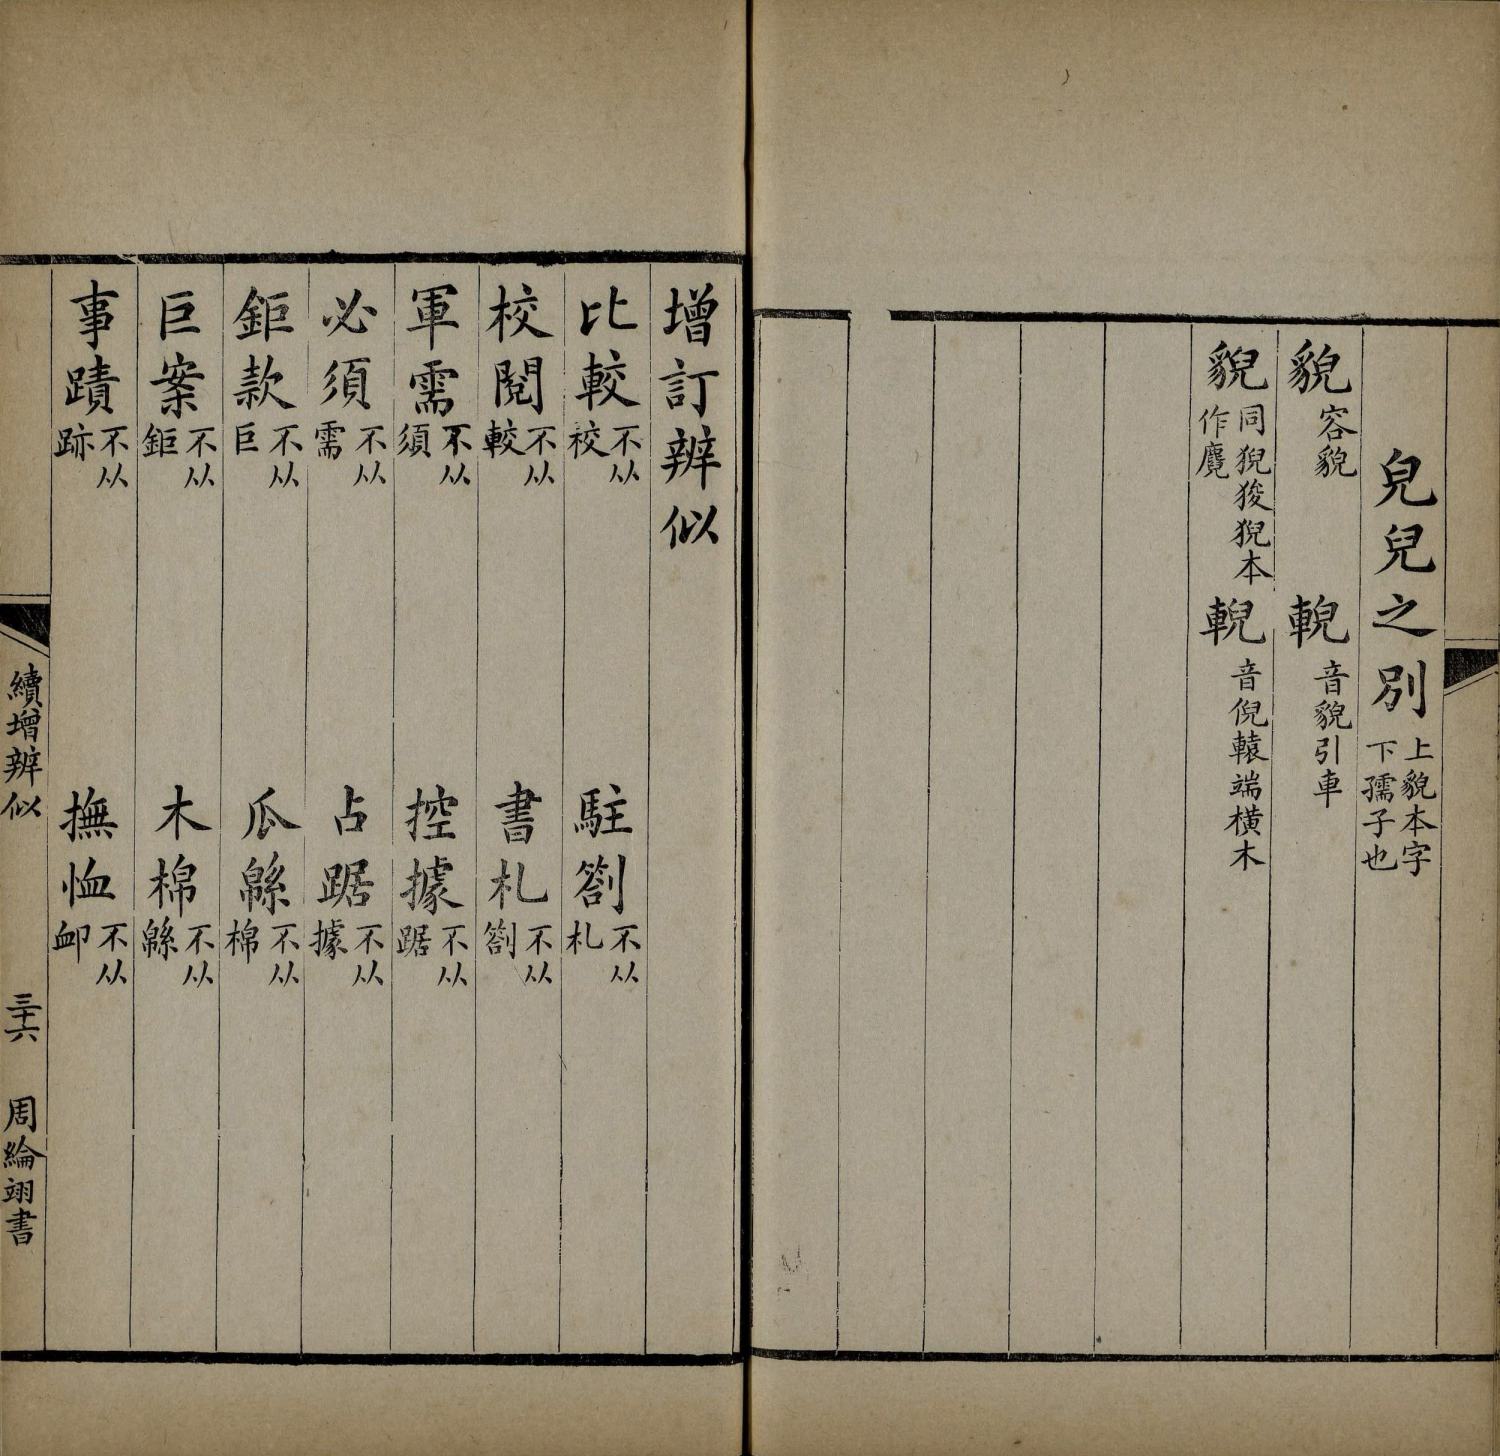 皃兒之別
上貌本字
下孺子也
貌
容貌
音貌引車
貎
同猊狻猊本
作麑
輗
音倪轅端橫木
增訂辨似
比較
不从
校
駐劄
不从
札
校閱
不从
較
書札
不从
劄
軍需
不从
須
控據
不从
踞
必須
不从
需
占踞
不从
據
鉅款
不从
巨
瓜緜
不从
棉
巨案
不从
鉅
木棉
不从
緜
事蹟
不从
跡
撫恤
不从
卹
續增辨似
三十六
周綸翊書